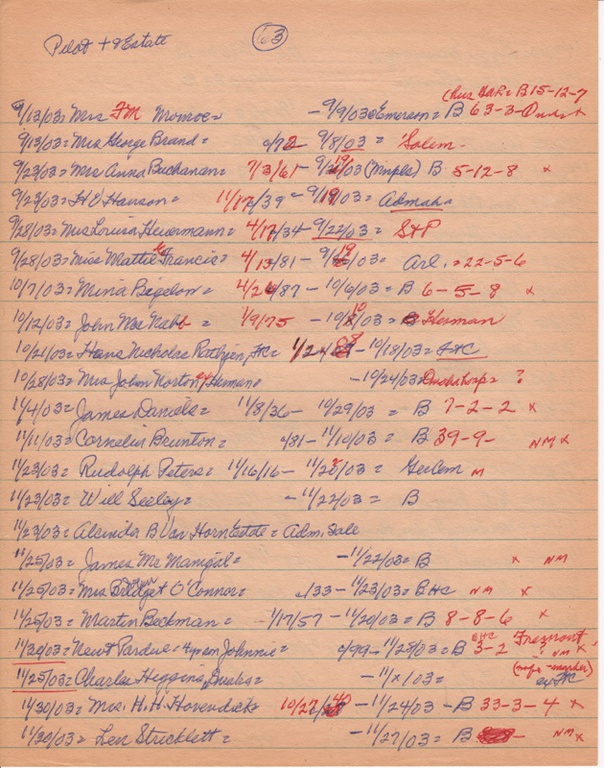 Pilot + Estate
63
(Chris Hdk= B 15-12-7
9/13/03= Mrs FM Monroe= - 9/9/03= Emerson= B 63-3-
9/13/03= Mrs George Brand= 0/72 - 9/8/03 = Salem-
9/23/03= Mrs Anna Buchanan= 7/3/61 - 9/19/03 (Mnple) B 5-12-8 x
9/23/03= H E Hanson= 11/17/39 - 9/19/03= Admah
9/28/03= Mrs Louisa Heuermann= 4/17/34 - 9/22/03 = S&P
9/28/03= Miss Mattie Francis= 4/13/81 - 9/19/03= Arl. = 22-5-6
10/7/03= Mina Begelon= 4/26/87 - 10/6/03= B 6-5-8 x
10/12/03= John Mc Nabb= 1/9/75 - 10/10/03= Herman
10/21/03= Hans Nicholas = 1/24/88 - 10/18/03=
10/28/03= Mrs John Norton Herman - 10/24/03= ?
11/4/03= James Daniels= 11/8/36 - 10/29/03 = B 7-2-2 x
11/11/03= Cornelia Brunton= /81 - 11/10/03= B 39-9- NM x
11/23/03= Rudolph Peters= 11/16/16 - 11/20/03 = M
11/23/03= Will Seeley= - 11/22/03= B
11/23/03= Alcinda B Van Horn Estate = Adm. Sale
11/25/03= James Mc Manigal= - 11/22/03= B x NM
11/25/03= Mrs Bridget O'Connor= /33 - 11/23/03= BHC NM x
11/25/03= Martin Beckman= 1/17/57 - 11/20/03= B 8-8-6 x
11/30/03= Newt Pardue= 4 Johnnie= 0/99 - 11/28/03= B 3-2 BHC Freznont, ? NM x
11/25/03= Charles Higgins, = - 11/x/03=
11/30/03= Mrs. H. H. Hovendick= 10/27/40 - 11/24/03 - B 33-3-4 x
11/30/03= Len Stricklett= - 11/27/03= B - NM x